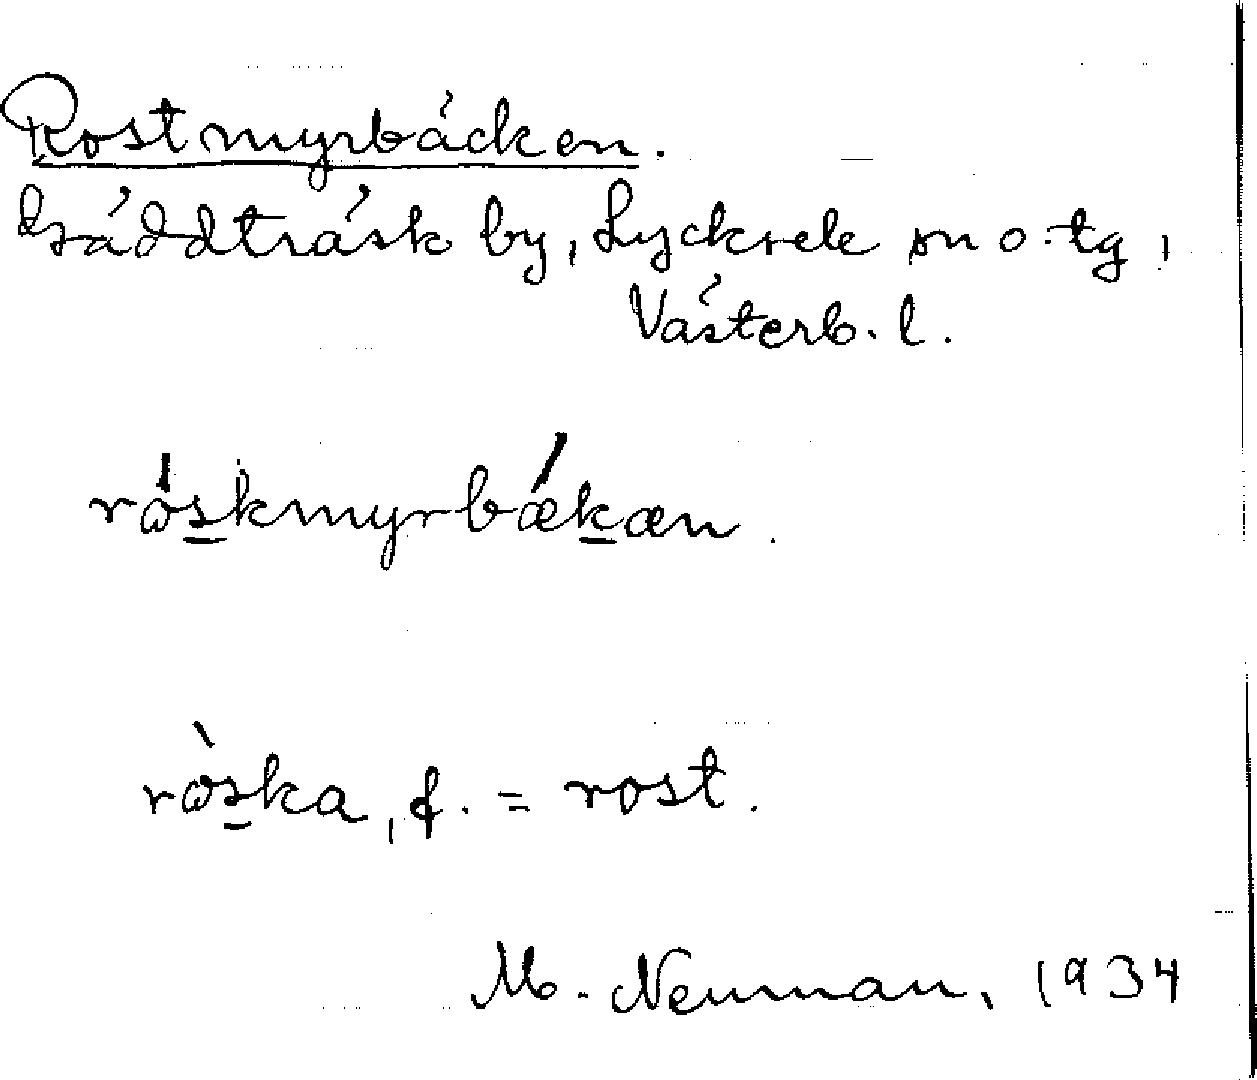 Rostmyrbäcken.
Gäddträsk by, Lycksele sn o. tg,
Västerb. l.
rȧskmyrbǽkæn.
ròska, f. = rost.
M. Neuman, 1934